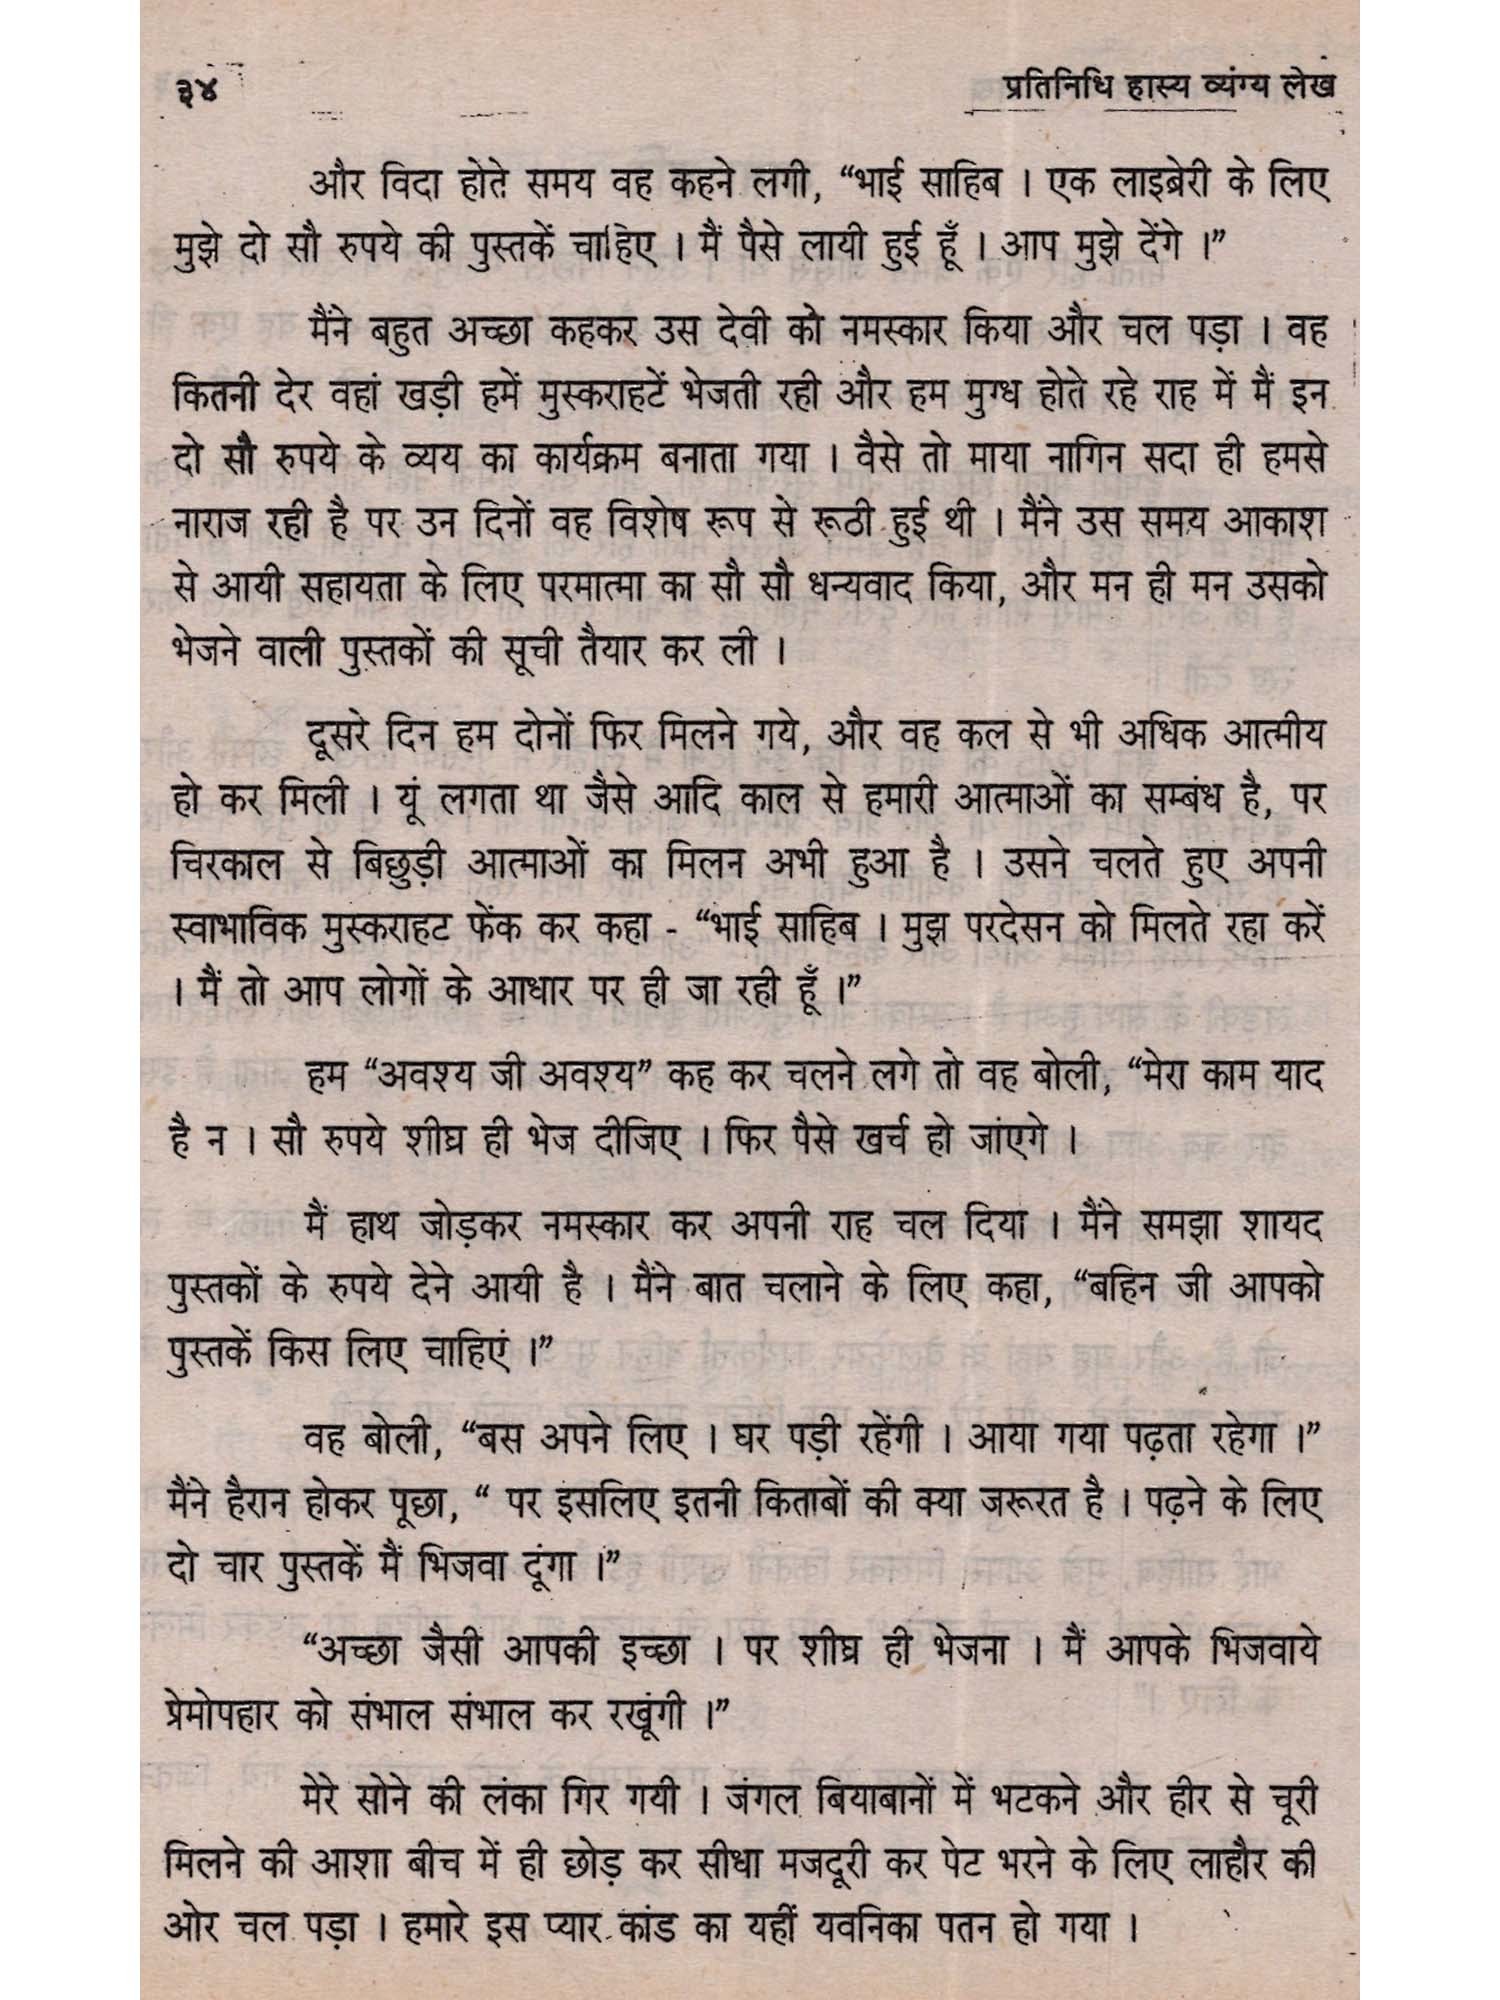 ३४
प्रतिनिधि हास्य व्यंग्य लेख
और विदा होते समय वह कहने लगी, “भाई साहिब । एक लाइब्रेरी के लिए
मुझे दो सौ रुपये की पुस्तकें चाहिए । मैं पैसे लायी हुई हूँ । आप मुझे देंगे ।”
मैंने बहुत अच्छा कहकर उस देवी को नमस्कार किया और चल पड़ा । वह
कितनी देर वहां खड़ी हमें मुस्कराहटें भेजती रही और हम मुग्ध होते रहे राह में मैं इन
दो सौ रुपये के व्यय का कार्यक्रम बनाता गया । वैसे तो माया नागिन सदा ही हमसे
नाराज रही है पर उन दिनों वह विशेष रूप से रूठी हुई थी । मैंने उस समय आकाश
से आयी सहायता के लिए परमात्मा का सौ सौ धन्यवाद किया, और मन ही मन उसको
भेजने वाली पुस्तकों की सूची तैयार कर ली ।
दूसरे दिन हम दोनों फिर मिलने गये, और वह कल से भी अधिक आत्मीय
हो कर मिली । यूं लगता था जैसे आदि काल से हमारी आत्माओं का सम्बंध है, पर
चिरकाल से बिछुड़ी आत्माओं का मिलन अभी हुआ है । उसने चलते हुए अपनी
स्वाभाविक मुस्कराहट फेंक कर कहा - “भाई साहिब । मुझ परदेसन को मिलते रहा करें
। मैं तो आप लोगों के आधार पर ही जा रही हूँ ।”
हम “अवश्य जी अवश्य” कह कर चलने लगे तो वह बोली, “मेरा काम याद
है न । सौ रुपये शीघ्र ही भेज दीजिए । फिर पैसे खर्च हो जांएगे ।
मैं हाथ जोड़कर नमस्कार कर अपनी राह चल दिया । मैंने समझा शायद
पुस्तकों के रुपये देने आयी है । मैंने बात चलाने के लिए कहा, “बहिन जी आपको
पुस्तकें किस लिए चाहिएं ।”
वह बोली, “बस अपने लिए । घर पड़ी रहेंगी । आया गया पढ़ता रहेगा ।”
मैंने हैरान होकर पूछा, “ पर इसलिए इतनी किताबों की क्या जरूरत है । पढ़ने के लिए
दो चार पुस्तकें मैं भिजवा दूंगा ।”
“अच्छा जैसी आपकी इच्छा । पर शीघ्र ही भेजना । मैं आपके भिजवाये
प्रेमोपहार को संभाल संभाल कर रखूंगी ।”
मेरे सोने की लंका गिर गयी । जंगल बियाबानों में भटकने और हीर से चूरी
मिलने की आशा बीच में ही छोड़ कर सीधा मजदूरी कर पेट भरने के लिए लाहौर की
ओर चल पड़ा । हमारे इस प्यार कांड का यहीं यवनिका पतन हो गया ।